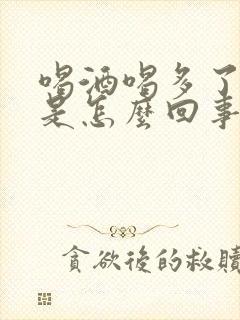 喝酒喝多了
是怎麼回事
貪欲後的救贖